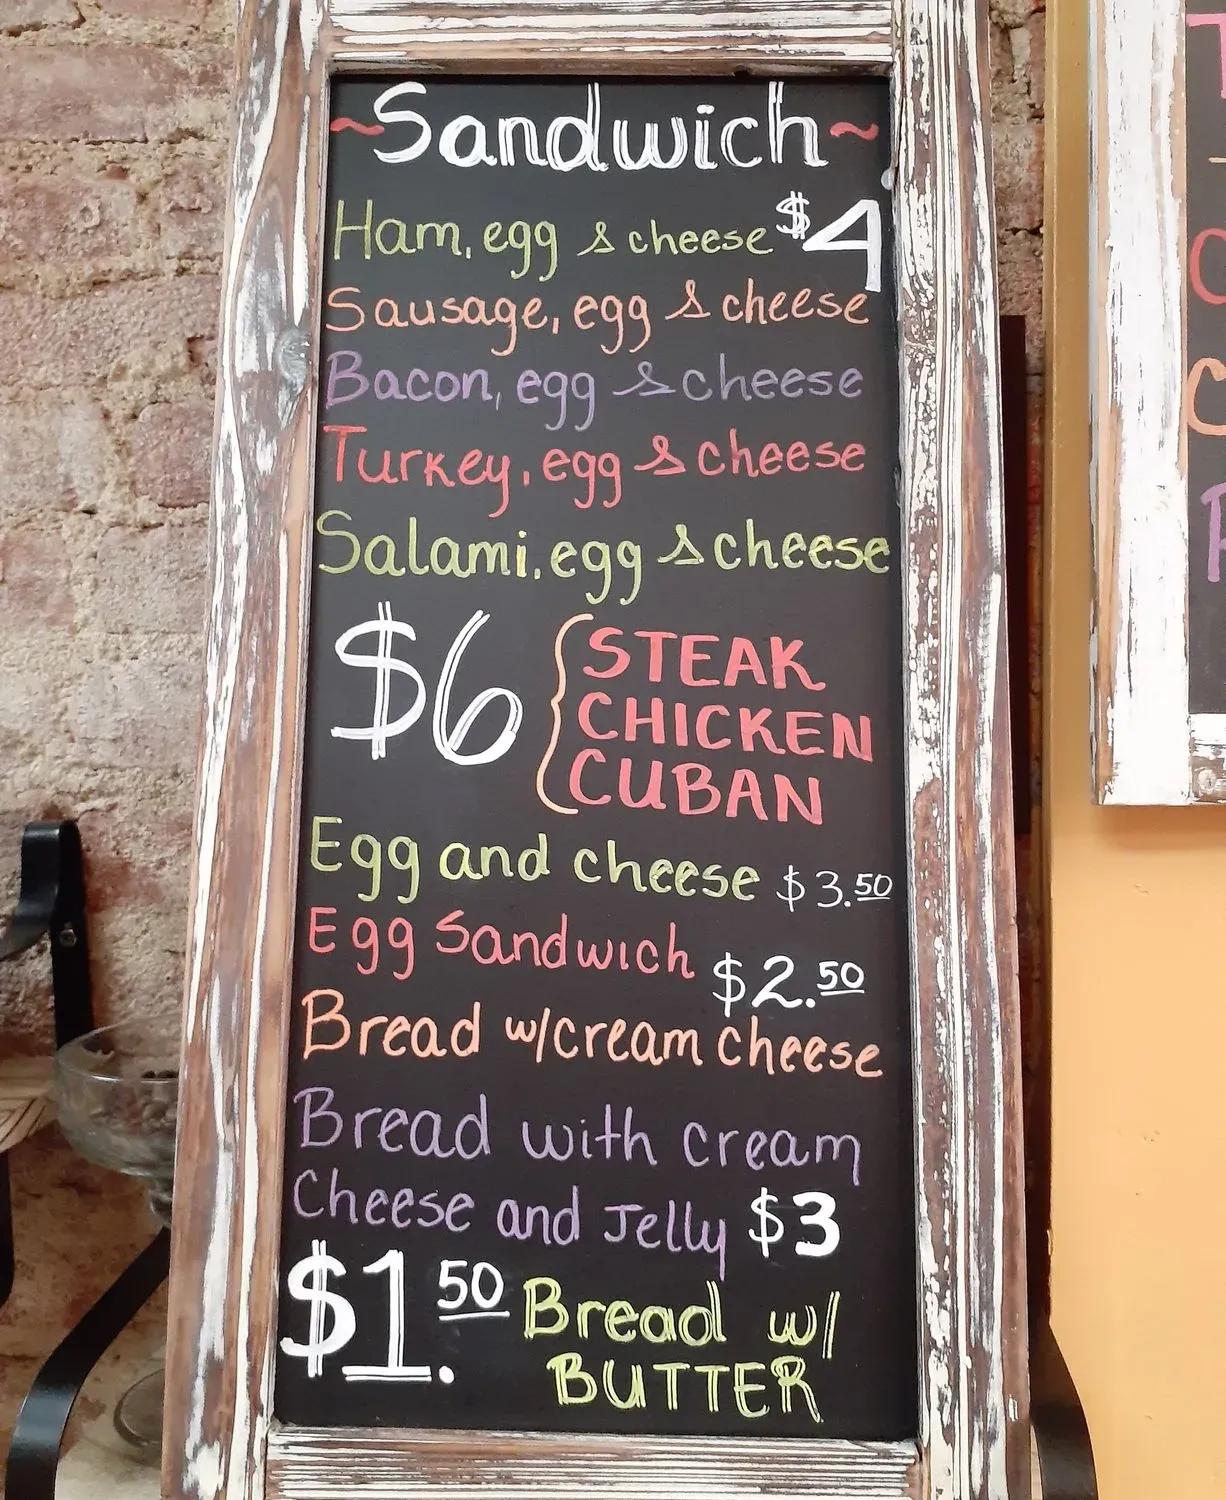 ~Sandwich~
Ham, egg & cheese $4
Sausage, egg & cheese
Bacon, egg & cheese
Turkey, egg & cheese
Salami, egg & cheese
$6 { STEAK
CHICKEN
CUBAN
Egg and cheese $3.50
Egg Sandwich $2.50
Bread w/cream cheese
Bread with cream
Cheese and Jelly $3
$1.50 Bread w/
BUTTER